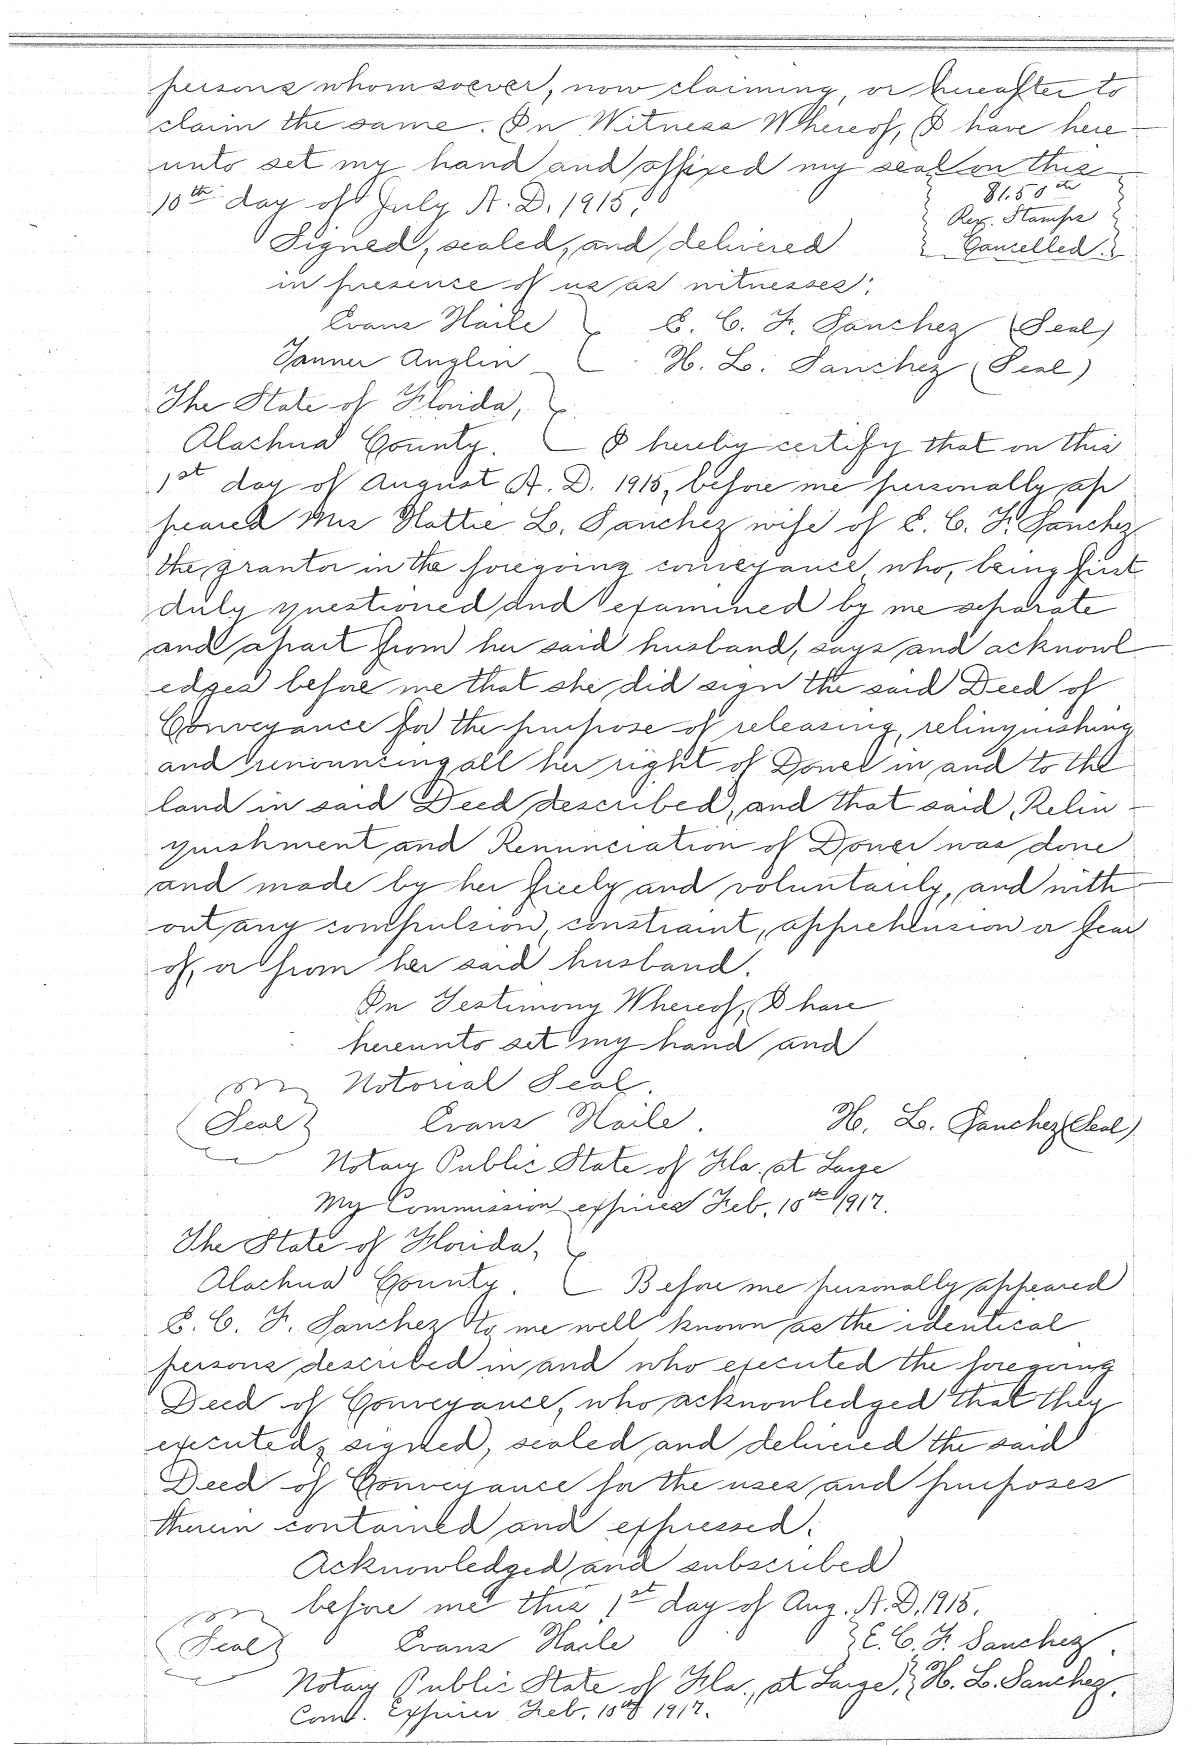 persons whomsoever, now claiming, or hereafter to
claim the same. In Witness Whereof, I have here
unto set my hand and affixed my seal on this
10th day of July A. D. 1915.
$1.50 cts
Rev. Stamps
Cancelled.
Signed, sealed, and delivered
in presence of us as witnesses:
Evans Haile E. C. F. Sanchez (Seal)
Tanner Anglin H. L. Sanchez (Seal)
The State of Florida,
Alachua County. I hereby certify that on this
1st day of August A. D. 1915, before me personally ap
peared Mrs Hattie L. Sanchez wife of E. C. F. Sanchez
the grantor in the foregoing conveyance who, being first
duly questioned and examined by me separate
and apart from her said husband, says and acknowl
edges before me that she did sign the said Deed of
Conveyance for the purpose of releasing, relinquishing
and renouncing all her right of Dower in and to the
land in said Deed described, and that said, Relin-
quishment and Renunciation of Dower was done
and made by her freely and voluntarily, and with-
out any compulsion, constraint, apprehension or fear
of, or from her said husband.
In Testimony Whereof, I have
hereunto set my hand and
Notorial Seal.
(Seal) Evans Haile. H. L. Sanchez (Seal)
Notary Public State of Fla. at Large
My Commission expires Feb. 10th 1917.
The State of Florida,
Alachua County. Before me personally appeared
E. C. F. Sanchez to me well known as the identical
persons described in and who executed the foregoing
Deed of Conveyance, who acknowledged that they
executed, signed, sealed and delivered the said
Deed of Conveyance for the uses and purposes
therein contained and expressed.
Acknowledged and subscribed
before me this 1st day of Aug. A. D. 1915.
(Seal) Evans Haile E. C. F. Sanchez.
Notary Public State of Fla., at Large, H. L. Sanchez.
Com. Expires Feb. 10th 1917.